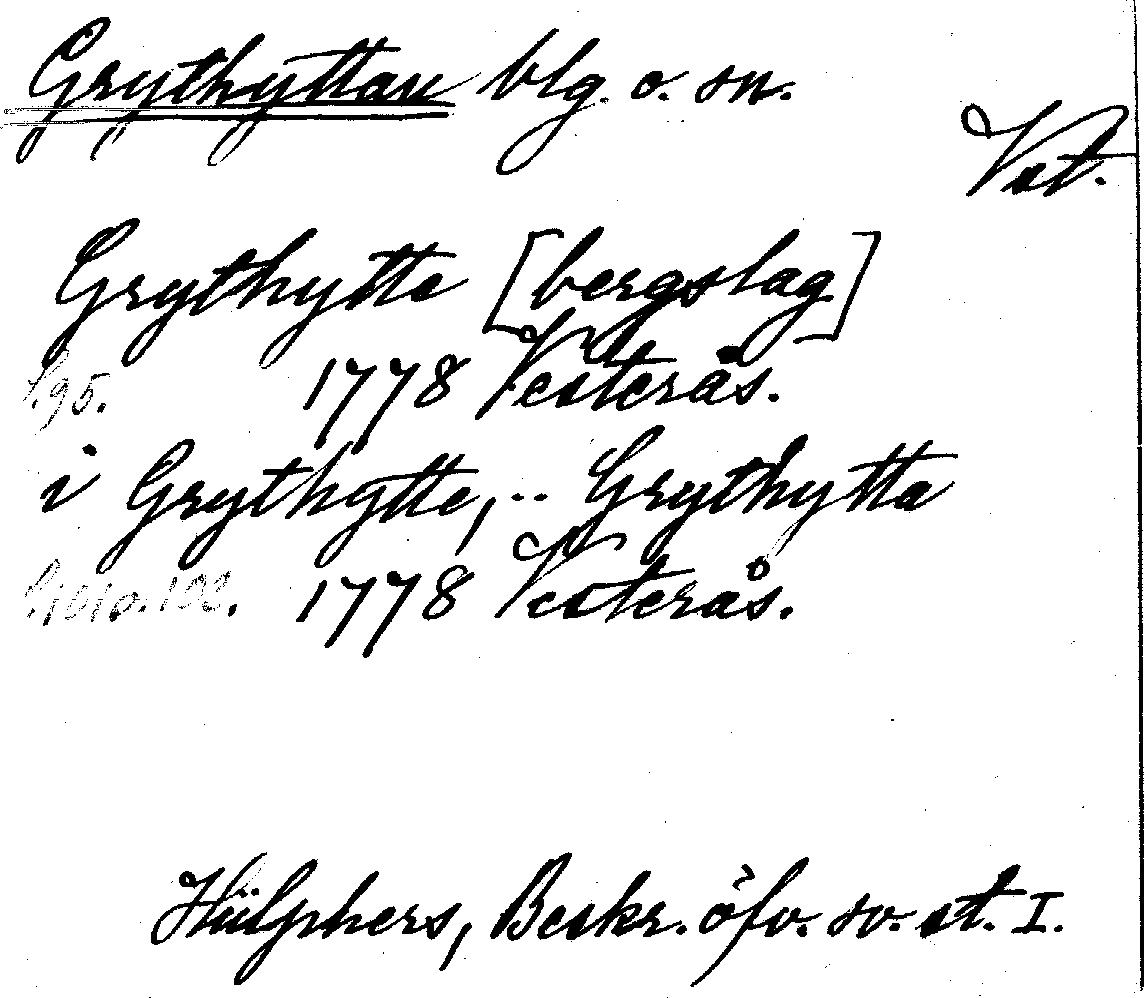 Grythyttan blg. o. sn.
Vst.
Grythytte [bergslag]
S.95. 1778 Vesterås.
i Grythytte, .. Grythytta
S.101 o. 102. 1778 Vesterås.
Hülphers, Beskr. öfv. sv. st. I.